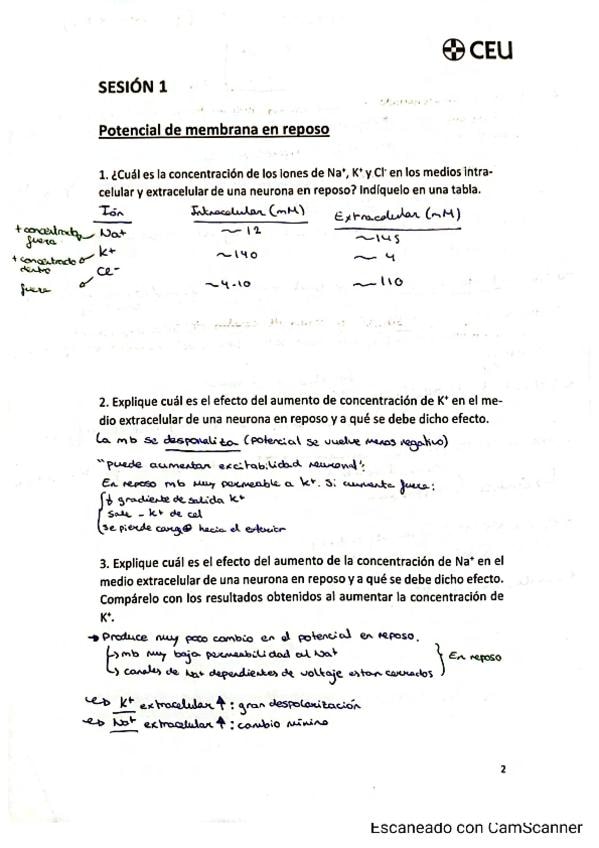 CEU
SESIÓN 1
Potencial de membrana en reposo
1. ¿Cuál es la concentración de los iones de Na⁺, K⁺ y Cl⁻ en los medios intra-
celular y extracelular de una neurona en reposo? Indíquelo en una tabla.
Ión Intracelular (mM) Extracelular (mM)
+ concentrado fuera Na⁺ ~12 ~145
+ concentrado dentro K⁺ ~140 ~4
fuera Cl⁻ ~4-10 ~110
2. Explique cuál es el efecto del aumento de concentración de K⁺ en el me-
dio extracelular de una neurona en reposo y a qué se debe dicho efecto.
La mb se despolariza (potencial se vuelve menos negativo)
"puede aumentar excitabilidad neuronal":
En reposo mb muy permeable a K⁺. Si aumenta fuera:
↓ gradiente de salida K⁺
Sale - K⁺ de cel
se pierde carga ⊕ hacia el exterior
3. Explique cuál es el efecto del aumento de la concentración de Na⁺ en el
medio extracelular de una neurona en reposo y a qué se debe dicho efecto.
Compárelo con los resultados obtenidos al aumentar la concentración de
K⁺.
→ Produce muy poco cambio en el potencial en reposo.
↳ mb muy baja permeabilidad al Na⁺
↳ canales de Na⁺ dependientes de voltaje estan cerrados } En reposo
↳ K⁺ extracelular ↑: gran despolarización
↳ Na⁺ extracelular ↑: cambio mínimo
2
Escaneado con CamScanner